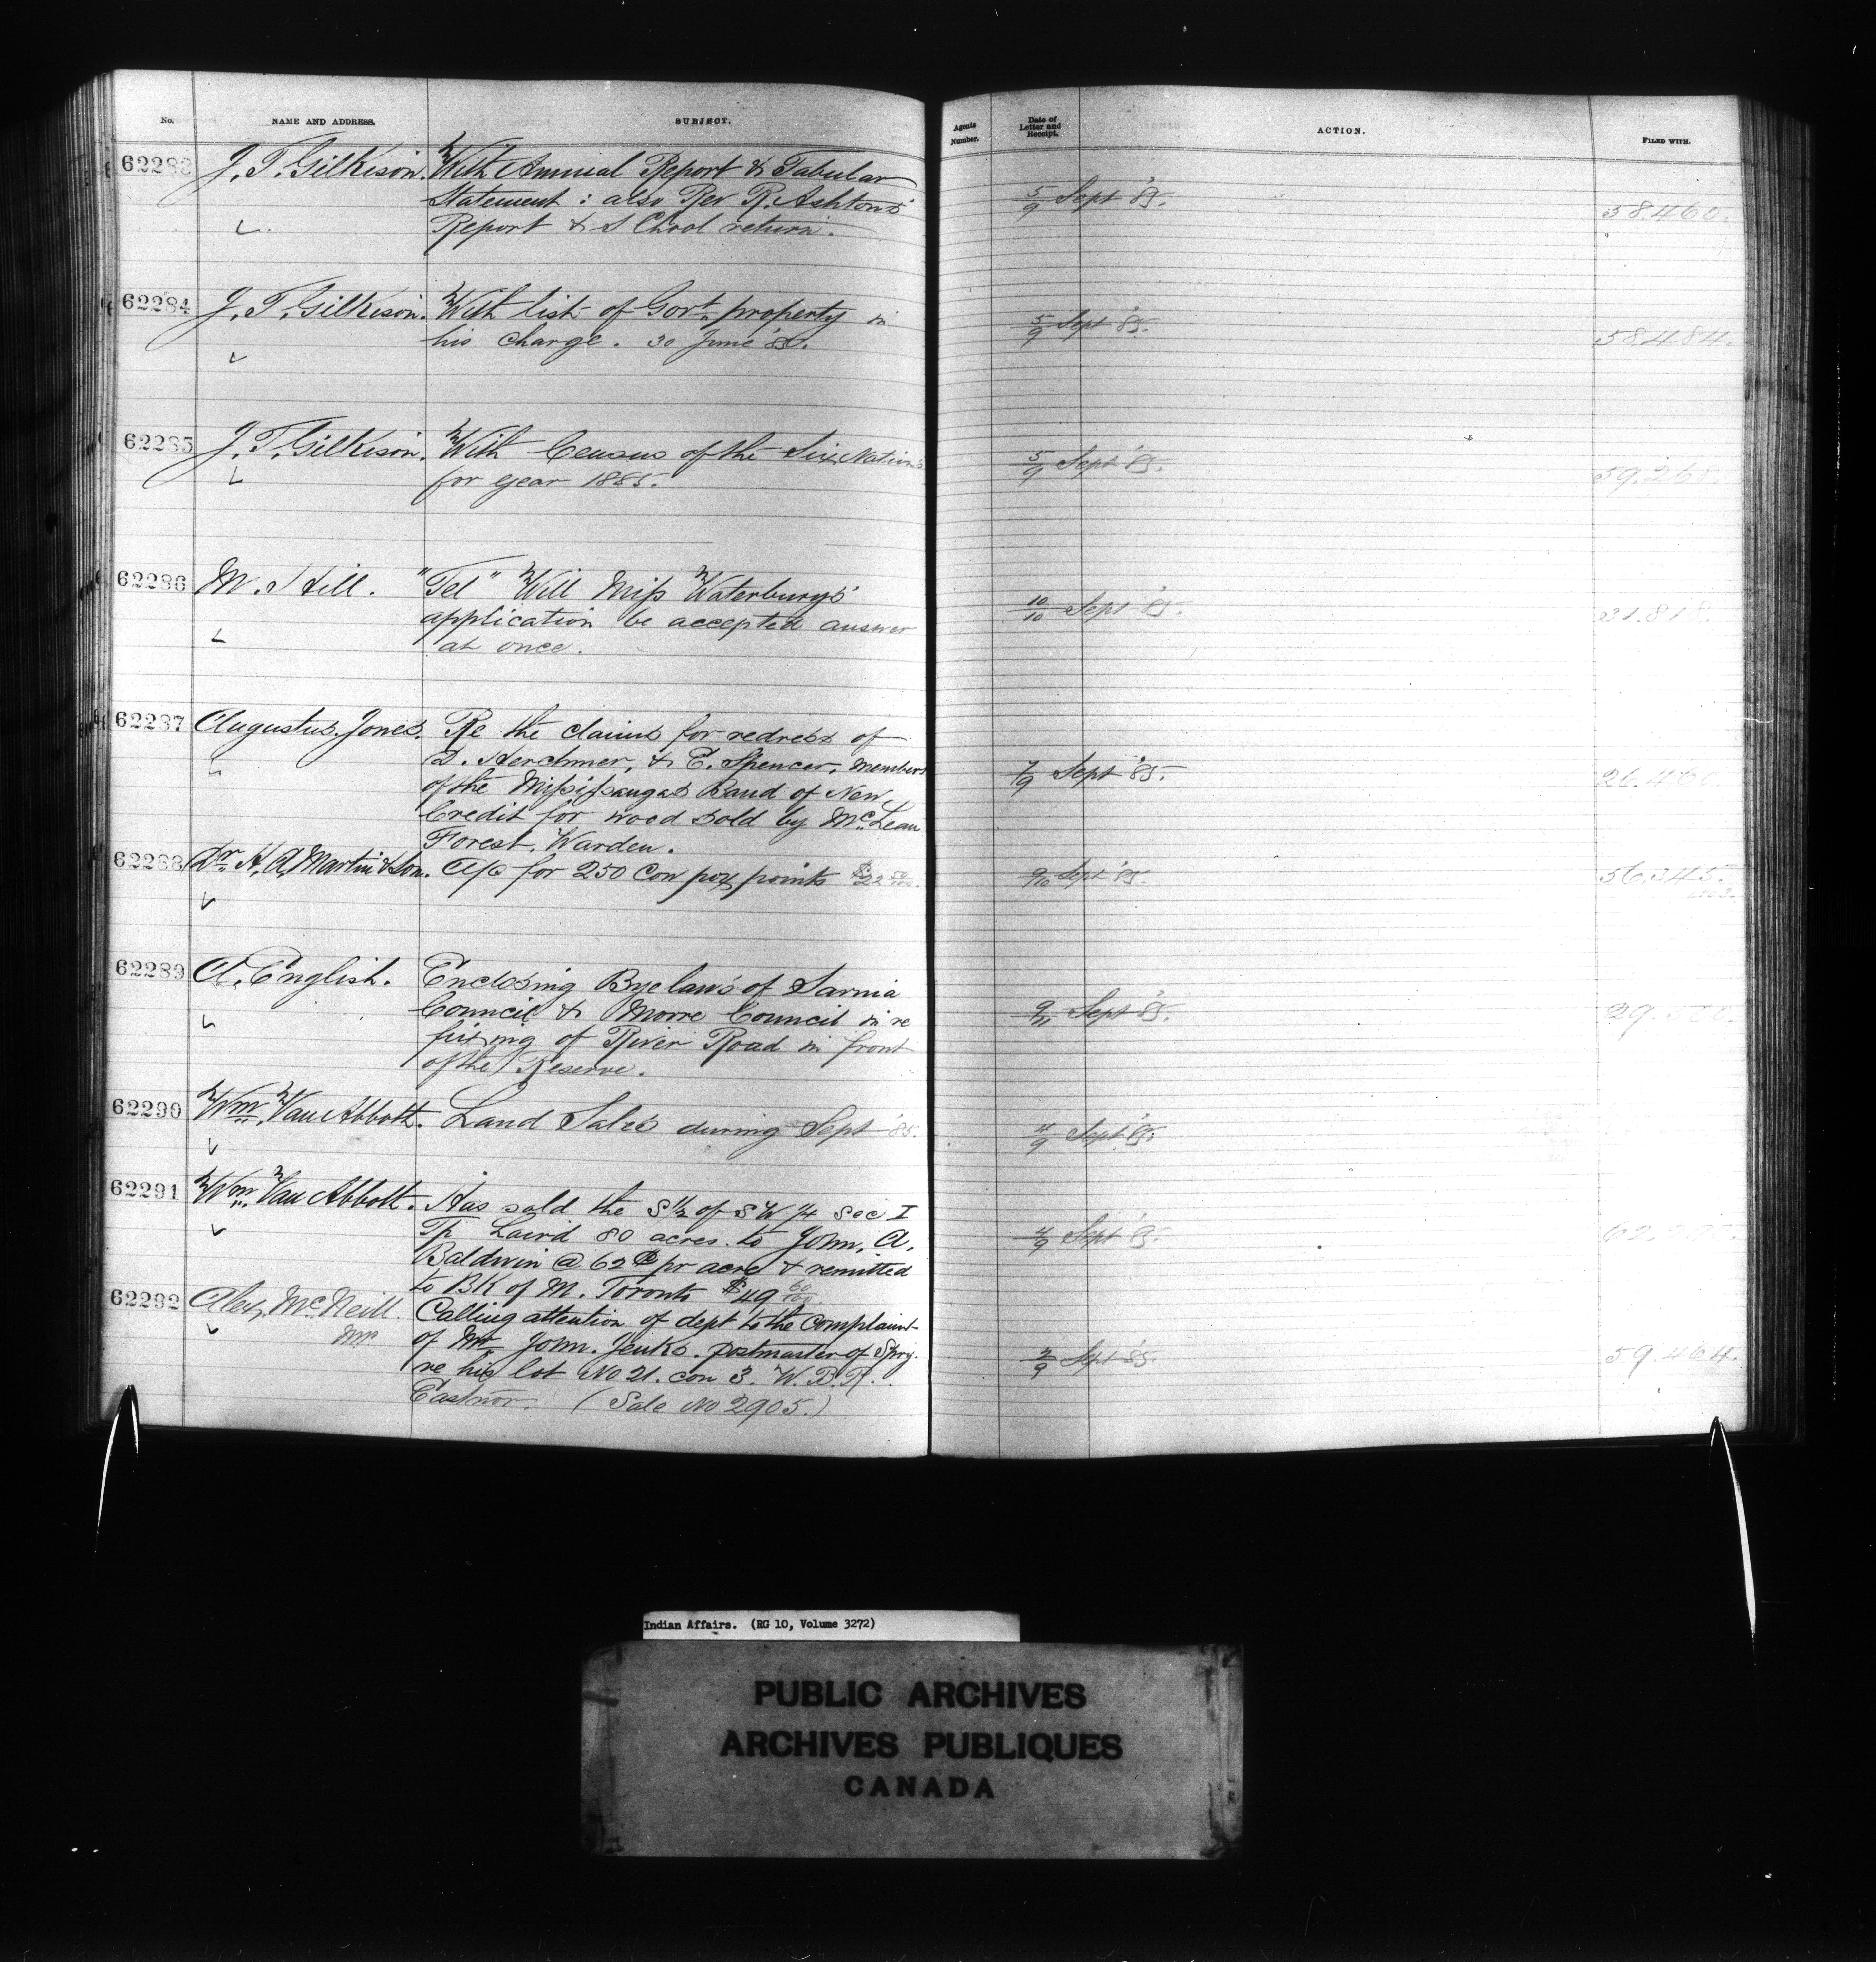 No. NAME AND ADDRESS. SUBJECT. Agents Number. Date of Letter and Receipt. ACTION. FILED WITH.
62283 J. T. Gilkison. With Annual Report & Tabular
Statement : also Rev R. Ashtons' 5/9 Sept '85. 58460.
Report & School return.
62284 J. T. Gilkison. With list of Govt. property in 5/9 Sept '85.
his charge. 30 June '85. 58484.
62285 J. T. Gilkison. With Census of the Six Nations 5/9 Sept '85.
for year 1885. 59.268.
62286 M. Hill. "Tel" Will Miss Waterburys'
application be accepted answer 10/10 Sept '85. 31.818.
at once.
62287 Augustus Jones. Re the claims for redress of
D. Herchmer, & E. Spencer, members 7/9 Sept '85. 26.460.
of the Mississaugas Band of New
Credit for wood sold by McLean
Forest, Warden.
62288 Dr. H. A. Martin & Son. A/c for 250 Cow pox points $22 50/100. 9/10 Sept '85. 56.345.
62289 A. English. Enclosing Byelaws of Sarnia
Council & Moore Council in re 9/11 Sept '85.
fixing of River Road in front
of the Reserve.
62290 Wm. Van Abbott. Land Sales during Sept '85. 4/9 Sept '85.
62291 Wm. Van Abbott. Has sold the S 1/2 of S W 1/4 Sec I
Tp Laird 80 acres to John. A. 4/9 Sept '85.
Baldwin @ 62 ¢ pr acre & remitted
to BK of M. Toronto $49 60/100.
62292 Alex, McNeill. Calling attention of dept to the complaint
MP of Mr. John. Jenks. postmaster of Spry. 2/9 Sept '85. 59.464.
re his lot No 21. con 3. W. B. R.
Eastnor. (Sale No 2905.)
Indian Affairs. (RG 10, Volume 3272)
PUBLIC ARCHIVES
ARCHIVES PUBLIQUES
CANADA